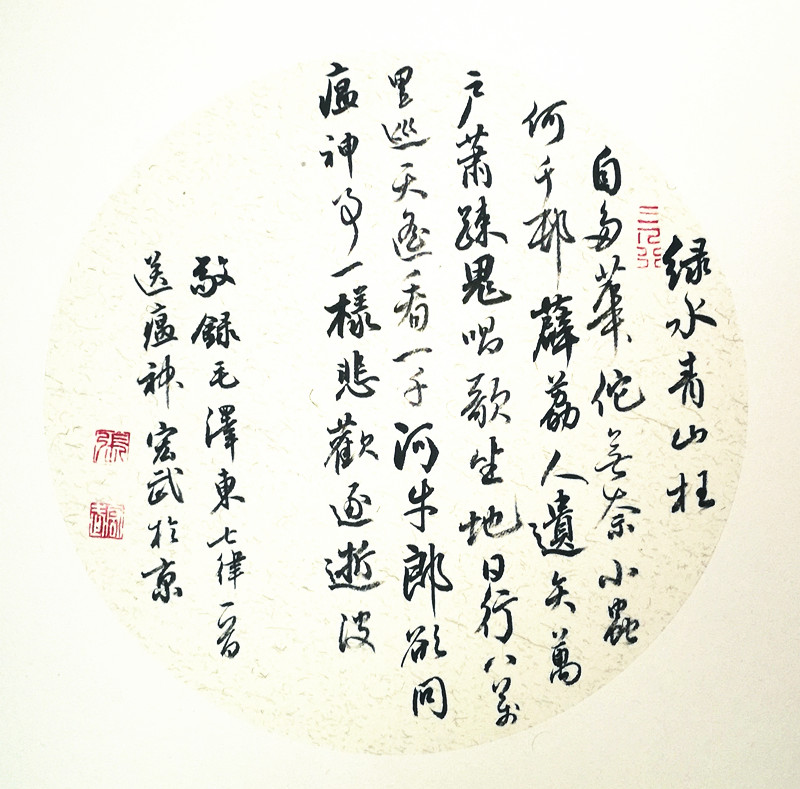 绿水青山枉
自多華佗無奈小蟲
何千邨薜荔人遺矢萬
户蕭疎鬼唱歌坐地日行八萬
里巡天遥看一千河牛郎欲問
瘟神事一樣悲歡逐逝波
敬録毛澤東七律一首
送瘟神宏武於京
三人行
張
宏武